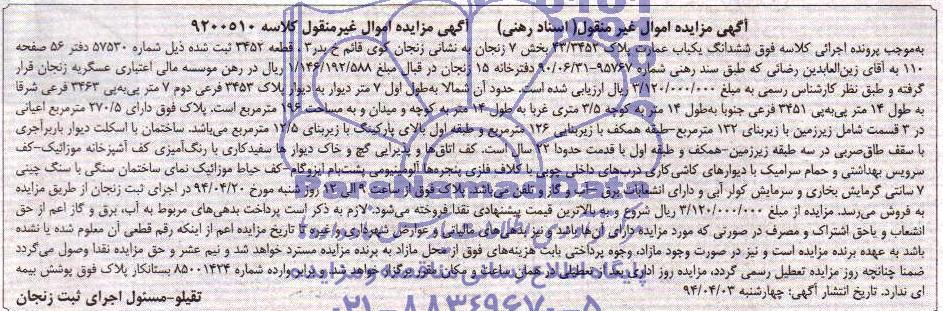 آگهی مزایده اموال غیر منقول( اسناد رهنی) آگهی مزایده اموال غیرمنقول کلاسه ۹۲۰۰۵۱۰
به‌موجب پرونده اجرائی کلاسه فوق ششدانگ یکباب عمارت پلاک ۴۳/۳۴۵۲ بخش ۷ زنجان به نشانی زنجان کوی قائم خ بدر۳ ، قطعه ۳۴۵۲ ثبت شده ذیل شماره ۵۷۵۳۰ دفتر ۵۶ صفحه
۱۱۰ به آقای زین‌العابدین رضائی که طبق سند رهنی شماره ۹۵۷۶۷-۹۰/۰۶/۳۱ دفترخانه ۱۵ زنجان در قبال مبلغ ۱/۱۴۶/۱۹۲/۵۸۸ ریال در رهن موسسه مالی اعتباری عسگریه زنجان قرار
گرفته و طبق نظر کارشناس رسمی به مبلغ ۳/۱۲۰/۰۰۰/۰۰۰ ریال ارزیابی شده است. حدود آن شمالا به‌طول اول ۷ متر دیوار به دیوار پلاک ۳۴۵۳ فرعی دوم ۷ متر پی‌به‌پی ۳۴۶۳ فرعی شرقا
به طول ۱۴ متر پی‌به‌پی ۳۴۵۱ فرعی جنوبا به‌طول ۱۴ متر به کوچه ۳/۵ متری غربا به طول ۱۴ متر به کوچه و میدان و به مساحت ۱۹۶ مترمربع است. پلاک فوق دارای ۲۷۰/۵ مترمربع اعیانی
در ۳ قسمت شامل زیرزمین با زیربنای ۱۳۲ مترمربع-طبقه همکف با زیربنایی ۱۲۶ مترمربع و طبقه اول بالای پارکینگ با زیربنای ۱۲/۵ مترمربع می‌باشد. ساختمان با اسکلت دیوار باربرآجری
با سقف طاق‌ضربی در سه طبقه زیرزمین-همکف و طبقه اول با قدمت حدودا ۲۲ سال است. کف اتاق‌ها و پذیرایی گچ و خاک دیوار ها سفیدکاری با رنگ‌آمیزی کف آشپزخانه موزائیک-کف
سرویس بهداشتی و حمام سرامیک با دیوارهای کاشی‌کاری درب‌های داخلی چوبی با کلاف فلزی پنجره‌ها آلومینیومی پشت‌بام ایزوگام-کف حیاط موزائیک نمای ساختمان سنگی با سنگ چینی
۷ سانتی گرمایش بخاری و سرمایش کولر آبی و دارای انشعابات برق-آب و گاز و تلفن می‌باشد. پلاک فوق از ساعت ۹ الی ۱۲ روز شنبه مورخ ۹۴/۰۴/۲۰ در اجرای ثبت زنجان از طریق مزایده
به فروش می‌رسد. مزایده از مبلغ ۳/۱۲۰/۰۰۰/۰۰۰ ریال شروع و به بالاترین قیمت پیشنهادی نقدا فروخته می‌شود. لازم به ذکر است پرداخت بدهی‌های مربوط به آب، برق و گاز اعم از حق
انشعاب و یاحق اشتراک و مصرف در صورتی که مورد مزایده دارای آن‌ها باشد و نیز بدهی‌های مالیاتی و عوارض شهرداری و غیره تا تاریخ مزایده اعم از اینکه رقم قطعی آن معلوم شده یا نشده
باشد به عهده برنده مزایده است و نیز در صورت وجود مازاد، وجوه پرداختی بابت هزینه‌های فوق از محل مازاد به برنده مزایده مسترد خواهد شد و نیم عشر و حق مزایده نقدا وصول می‌گردد
ضمنا چنانچه روز مزایده تعطیل رسمی گردد، مزایده روز اداری بعد از تعطیلی در همان ساعت و مکان مقرر برگزار خواهد شد و برابر وارده شماره ۸۵۰۰۱۴۳۴ بستانکار پلاک فوق پوشش بیمه
ای ندارد. تاریخ انتشار آگهی: چهارشنبه ۹۴/۰۴/۰۳
تقیلو-مسئول اجرای ثبت زنجان
۰۲۱-۸۸۳۴۹۶۷۰-۵